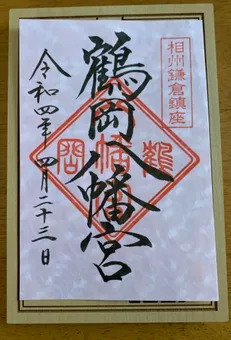 相州鎌倉鎮座
鶴岡八幡宮
令和四年四月二十三日